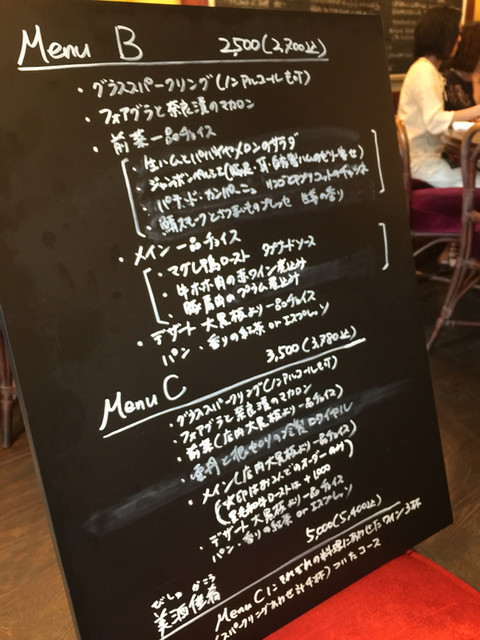 Menu B 2,500(2,700込)
・グラススパークリング(ノンアルコールも可)
・フォアグラと奈良漬のマカロン
・前菜一品チョイス
・生ハムとパパイヤメロンのサラダ
・ジャンボンペルシエ(豚足・耳・自家製ハムのゼリー寄せ)
・パテ・ド・カンパーニュ リンゴとアプリコットのチャツネ
・鯖スモークとさつまいものプレッセ の香り
・メイン一品チョイス
・マグレ鴨ロースト ソース
・牛ホホ肉の赤ワイン煮込み
・豚肩肉のプラム煮込み
・デザート 大黒板より一品チョイス
パン・香りの紅茶 or エスプレッソ
Menu C 3,500(3,780込)
・グラススパークリング(ノンアルコールも可)
・フォアグラと奈良漬のマカロン
・前菜(店内大黒板より一品チョイス)
・ロワイヤル
・メイン(店内大黒板より一品チョイス)
(水印はお二人でのオーダーのみ)
ローストは+1000
・デザート 大黒板より一品チョイス
パン・香りの紅茶 or エスプレッソ
5,000(5,400込)
びしゅ かこう
美酒佳肴 Menu Cにそれぞれの料理にあわせたワイン3杯
(スパークリングあわせ計4杯)ついたコース